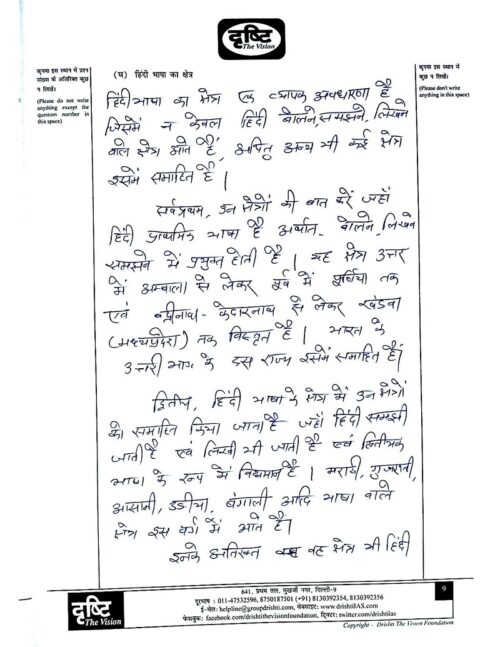 दृष्टि
The Vision
कृपया इस स्थान में प्रश्न
संख्या के अतिरिक्त कुछ
न लिखें।
(Please do not write
anything except the
question number in
this space)
कृपया इस स्थान में
कुछ न लिखें।
(Please don't write
anything in this space)
(घ) हिंदी भाषा का क्षेत्र
हिंदी भाषा का क्षेत्र एक व्यापक अवधारणा है
जिसमें न केवल हिंदी बोलने, समझने, लिखने
वाले क्षेत्र आते हैं, अपितु अन्य भी कई क्षेत्र
इसमें समाहित हैं।
सर्वप्रथम, उन क्षेत्रों की बात करें जहाँ
हिंदी प्राथमिक भाषा है अर्थात बोलने, लिखने
समझने में प्रयुक्त होती है। यह क्षेत्र उत्तर
में अम्बाला से लेकर पूर्व में पूर्णिया तक
एवं बद्रीनाथ-केदारनाथ से लेकर खंडवा
(मध्यप्रदेश) तक विस्तृत है। भारत के
उत्तरी भाग के दस राज्य इसमें समाहित हैं।
द्वितीय, हिंदी भाषा के क्षेत्र में उन क्षेत्रों
को समाहित किया जाता है जहाँ हिंदी समझी
जाती है एवं लिखी भी जाती है एवं द्वितीयक
भाषा के रूप में विद्यमान है। मराठी, गुजराती,
आसामी, उड़ीया, बंगाली आदि भाषा वाले
क्षेत्र इस वर्ग में आते हैं।
इनके अतिरिक्त वह क्षेत्र भी हिंदी
दृष्टि
The Vision
641, प्रथम तल, मुखर्जी नगर, दिल्ली-9
दूरभाष : 011-47532596, 8750187501 (+91) 8130392354, 8130392356
ई-मेल: helpline@groupdrishti.com, वेबसाइट: www.drishtiIAS.com
फेसबुक: facebook.com/drishtithevisionfoundation, ट्विटर: twitter.com/drishtiias
9
Copyright – Drishti The Vision Foundation